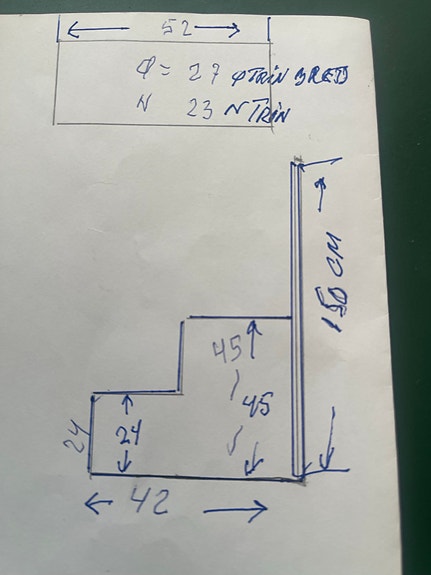 52
φ = 27 φTRIN BRED
N 23 NTRIN
150 CM
45
45
24
24
42